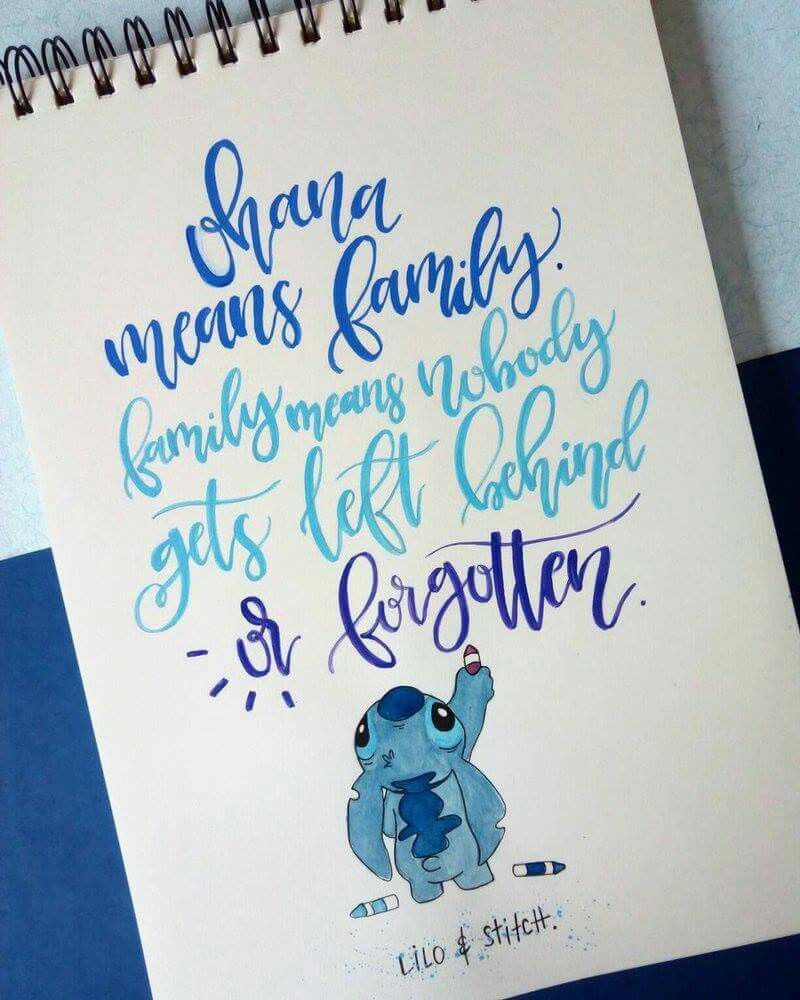 ohana
means family.
family means nobody
gets left behind
or forgotten.
LILO & STITCH.